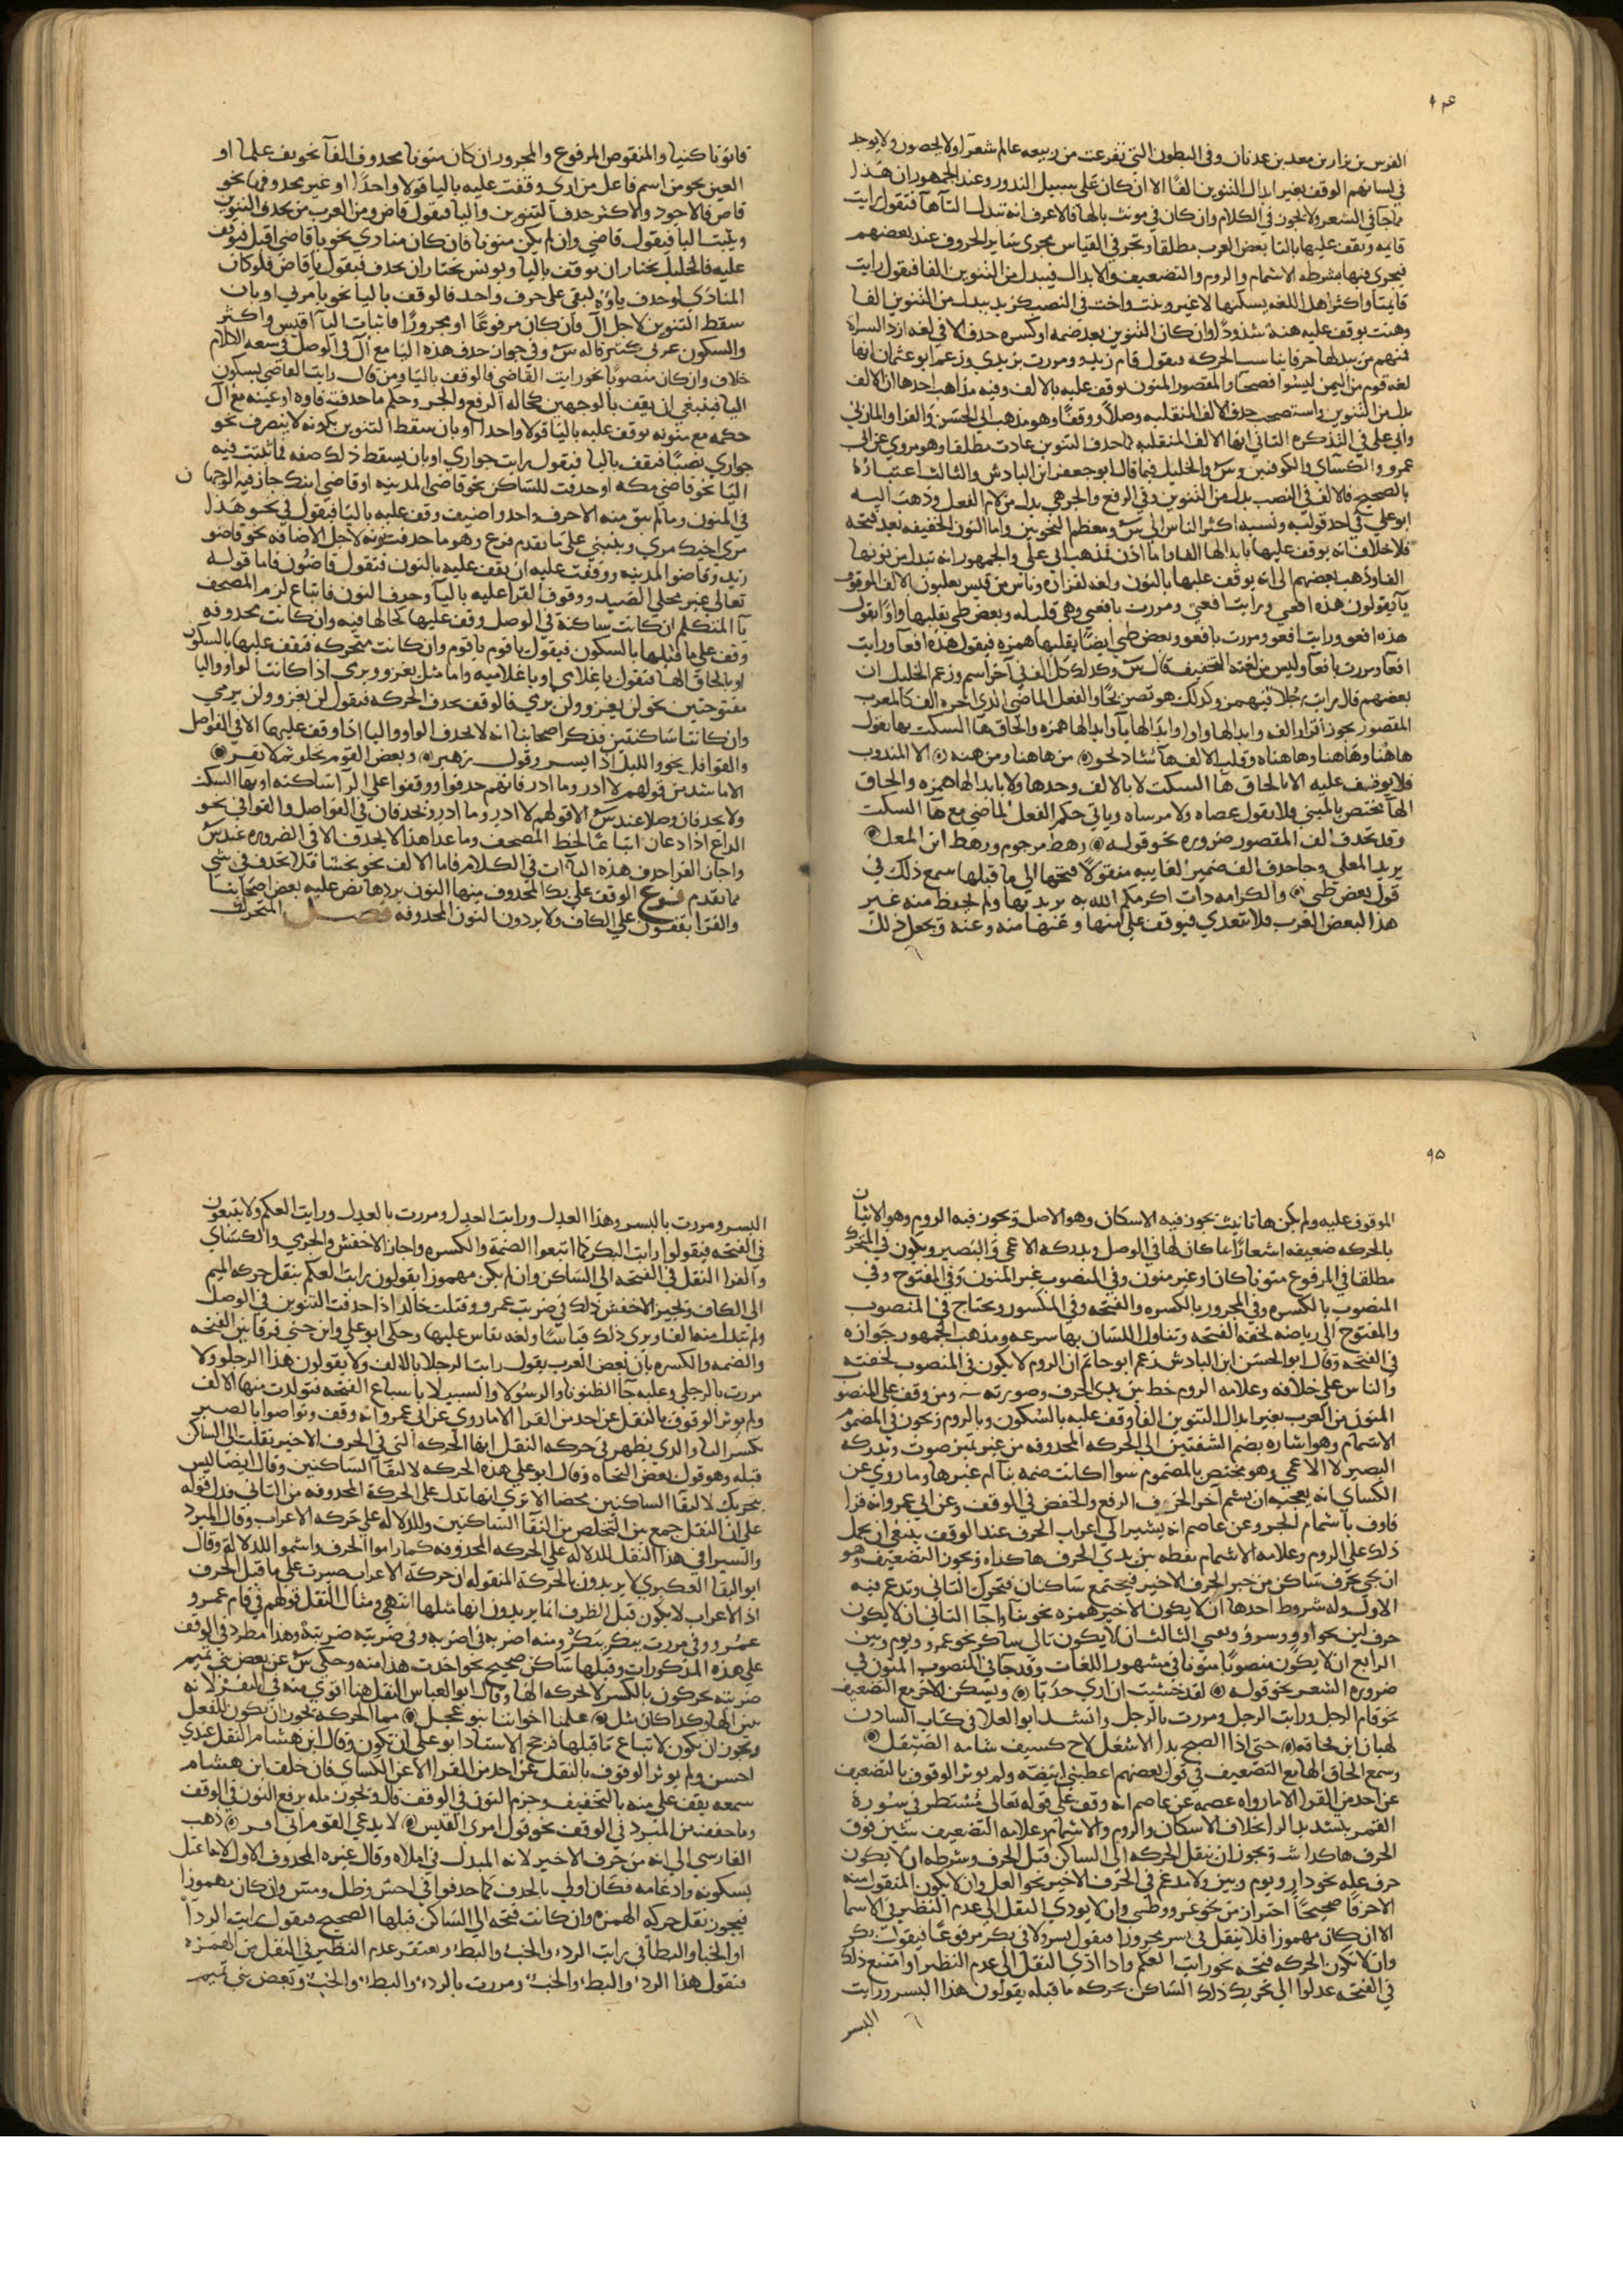 ٩٤
الفرس بن نزار بن معد بن عدنان وفي البطون التي تفرعت من ربيعه عالم شعرآ اولا يحصون ولا يوجد
في لسانهم الوقف بغير ابدال التنوين الفًا الا ان كان على سبيل الندور وعند الجمهور ان هذا
مما جا في الشعر ولا يجوز في الكلام وان كان في مونث بالها فالاعرف انه تبدل التآ هآ فتقول رايت
قايمه ويقف عليها بالتا بعض العرب مطلقا وتجري في القياس مجرى ساير الحروف عند بعضهم
فيجري فيها بشرطه الاشمام والروم والتضعيف والابدال فيبدل من التنوين الفا فيقول رايت
قايمتا واكثر اهل هذا اللغه يسكنها لا غير وبنت واخت في النصب كزيد يبدل من التنوين الفا
وهنت يوقف عليه هنه شذوذًا وان كان التنوين بعد ضمه او كسره حذف الا في لغه ازد السراه
فمنهم من يبدلها حرفا يناسب الحركه فيقول قام زيدو ومررت بزيدي وزعم ابو عثمان انها
لغه قوم من اليمن ليسوا فصحآ والمقصور المنون يوقف عليه بالالف وفيه مذاهب احدها ان الالف
بدل من التنوين واستصحب حذف الالف المنقلبه وصلًا ووقفًا وهو مذهب ابي الحسن والفرا والمازني
وابي علي في التذكره الثاني انها الالف المنقلبه لما حذف التنوين عادت مطلقا وهو مروي عن ابي
عمرو والكسآي والكوفيين وس والخليل فيما قال ابو جعفر ابن الباذش والثالث اعتباره
بالصحيح فالالف في النصب بدل من التنوين وفي الرفع والجر هي بدل من لام الفعل وذهب اليه
ابو علي في احد قوليه ونسبه اكثر الناس الى س ومعظم النحويين واما النون الخفيفه بعد فتحه
فلا خلاف انه يوقف عليها بابدالها الفا واما اذن فمذهب ابي علي والجمهور انه تبدل من نونها
الف وذهب بعضهم الى انه يوقف عليها بالنون ولغه لفزاره وناس من قيس يقلبون الالف الموقوف
يآ يقولون هذه افعي ورايت افعي ومررت بافعي وهي قليله وبعض طي يقلبها واوًا يقول
هذه افعو ورايت افعو ومررت بافعو وبعض طي ايضًا يقلبها همزه فيقول هذه افعآ ورايت
افعآ ومررت بافعآ وليس من لغته التخفيف قال س وكذلك كل الف في آخر اسم وزعم الخليل ان
بعضهم قال رايت رجلا فيهمز وكذلك هو تصريحًا والفعل الماضي الذي آخره الف كالمعرب
المقصور يجوز اقرار الفه وابدالها واوا وابدالها يآ وابدالها همزه والحاق ها السكت بها يقول
هاهنا وهاهناه وقلب الالف هآ شاذ نحو من هاهنا ومن هنه الا المندوب
فلا يوقف عليه الا بالحاق هآ السكت لا بالالف وحدها ولا بابدالها همزه والحاق
الهآ يختص بالمبني فلا يقول عصاه ولا مرساه وياتي حكم الفعل الماضي مع هآ السكت
وقد تحذف الف المقصور ضروره نحو قوله رهط مرجوم ورهط ابن المعل
يريد المعلي وجا حذف الف ضمير الغايبه منقولًا فتحها الى ما قبلها سمع ذلك في
قول بعض طي والكرامه ذات اكرمكم الله به يريد بها ولم يحفظ منه غير
هذا البعض الغرب فلا يتعدي فيوقف على منها وعنها منه وعنه وتجعل ذلك
قانونا كليا والمنقوص المرفوع والمجرور ان كان منونا محذوف الفآ نحو يف علما او
العين نحو مر اسم فاعل من اري وقفت عليه باليا قولا واحدًا او غير محذوفها نحو
قاض فالاجود والاكثر حذف التنوين واليا فيقول قاض ومن العرب من يحذف التنوين
ويثبت اليا فيقول قاضي وان لم يكن منونا فان كان منادي نحو يا قاضي اقبل فيوقف
عليه فالخليل يختار ان يوقف باليا ويونس يختار ان يحذف فيقول يا قاض فلو كان
المنادي لو حذف ياؤه لبقي على حرف واحد فالوقف باليا نحو يا مري او بان
سقط التنوين لاجل ال فان كان مرفوعًا او مجرورًا فاثبات اليآ اقيس واكثر
والسكون عربي كثير قاله س وفي جواز حذف هذه اليا مع ال في الوصل في سعه الكلام
خلاف وان كان منصوبًا نحو رايت القاضي فالوقف باليا ومن قال رايت القاضي بسكون
اليا فينبغي ان يقف بالوجهين كحاله الرفع والجر وحكم ما حذفت فاوه او عينه مع ال
حكمه مع تنوينه يوقف عليه باليا قولا واحدا او بان سقط التنوين بكونه لا ينصرف نحو
جواري نصبًا فيقف باليا فيقول رايت جواري او بان يسقط ذلك صفه فما ثبتت فيه
اليا نحو قاضي مكه او حذفت للساكن نحو قاضي المدينه او قاضي ابنك جاز فيه الوجهان
في المنون وما لم يبق منه الا حرف واحد واضيف وقف عليه باليا فيقول في نحو هذا
مري اخيك مري وينبني على ما تقدم فرع وهو ما حذفت نونه لاجل الاضافه نحو قاضو
زيد وقاضوا المدينه ووقفت عليه ان يقف عليه بالنون فتقول قاضون فاما قوله
تعالى غير محلي الصيد ووقوف القرا عليه باليآ وحذف النون فاتباع لرسم المصحف
يآ المتكلم ان كانت ساكنة في الوصل وقف عليها كحالها فيه وان كانت محذوفه
وقف على ما قبلها بالسكون فيقول يا قوم يا قوم وان كانت متحركه فيقف عليها بالسكون
او بالحاق الها فتقول يا غلامي او يا غلاميه واما مثل يغزو ويرمي اذا كانت الواو واليا
مفتوحتين نحو لن يغزو ولن يرمي فالوقف بحذف الحركه فيقول لن يغزو ولن يرمي
وان كانتا ساكنتين فذكر اصحابنا انه لا تحذف الواو واليا اذا وقف عليهما الا في الفواصل
والقوافي نحو والليل اذا يسر وقول زهير وبعض القوم يخلق ثم لا يفر
الا ما شذ من قولهم لا ادر وما ادر فانهم حذفوا ووقفوا على الرآ ساكنه او بها السكت
ولا يحذفان وصلا عند س الا قولهم لا ادر وما ادر وتحذفان في الفواصل والقوافي نحو
الداع اذا دعان اتباعًا لخط المصحف وما عدا هذا لا يحذف الا في الضروره عند س
واجاز الفرا حذف هذه اليآات في الكلام فاما الالف نحو يخشا فلا يحذف في شي
مما تقدم فرع الوقف على يك المحذوف منها النون بردها نص عليه بعض اصحابنا
والقرا يقفون على الكاف ولا يردون النون المحذوفه فصل المتحرك
٩٥
الموقوف عليه ولم يكن ها تانيث يجوز فيه الاسكان وهو الاصل ويجوز فيه الروم وهو الاتيان
بالحركه ضعيفه اشعارًا بما كان لها في الوصل ويدركه الاعمي والبصير ويكون في المتحرك
مطلقا في المرفوع منونا كان او غير منون وفي المنصوب غير المنون وفي المفتوح وفي
المنصوب بالكسره وفي المجرور بالكسره والفتحه وفي المكسور ويحتاج في المنصوب
والمفتوح الى رياضه لخفه الفتحه وتناول اللسان بها بسرعه ومذهب الجمهور جوازه
في الفتحه وقال ابو الحسن ابن الباذش زعم ابو حاتم ان الروم لا يكون في المنصوب لخفته
والناس على خلافه وعلامه الروم خط بين يدي الحرف وصورته ـ ومن وقف على المنصوب
المنون من العرب بغير ابدال التنوين الفا وقف عليه بالسكون وبالروم ويجوز في المضموم
الاشمام وهو اشاره بضم الشفتين الى الحركه المحذوفه من غير صوت ويدركه
البصير لا الاعمي وهو مختص بالمضموم سوا اكانت ضمه بنا ام غيرها وما روي عن
الكساي انه يعجبه ان يشم آخر الحرف الرفع والخفض في الوقف وعن ابي عمرو انه قرا
فاوف باشمام الجر وعن عاصم انه يشير الى اعراب الحرف عند الوقف ينبغي ان يحمل
ذلك على الروم وعلامه الاشمام نقطه بين يدي الحرف هاكذا ويجوز التضعيف وهو
ان تجي بحرف ساكن من جنس الحرف الاخير فيجتمع ساكنان فتحرك الثاني وتدغم فيه
الاول وله شروط احدها ان لا يكون الاخير همزه نحو بنآ واجآ الثاني ان لا يكون
حرف لين نحو واو وسرو وبقي الثالث ان لا يكون تالي ساكن نحو عمرو ويوم وبين
الرابع ان لا يكون منصوبًا منونا في مشهور اللغات وقد جآ في المنصوب المنون في
ضروره الشعر نحو قوله لقد خشيت ان اري جدبّا وتسكن الاخر مع التضعيف
نحو قام الرجل ورايت الرجل ومررت بالرجل وانشد ابو العلا في كتاب السادن
لهيان ابن قحافه حتى اذا الصبح بدا الاشعل لاح كسيف شامه الصيقل
وسمع الحاق الها مع التضعيف في قول بعضهم اعطيني ابيضّه ولم يوثر الوقوف بالتضعيف
عن احد من القرا الا ما رواه عصمه عن عاصم انه وقف على قوله تعالى مستطر في سورة
القمر بتشديد الرا بخلاف الاسكان والروم والاشمام وعلامه التضعيف شين فوق
الحرف هاكذا ش ويجوز ان تنقل الحركه الى الساكن قبل الحرف وشرطه ان لا يكون
حرف عله نحو دار ويوم وبين ولا مدغم في الحرف الاخير نحو العل وان لا يكون المنقول منه
الا حرفا صحيحًا احتراز من نحو غزو وظبي وان لا يودي النقل الى عدم النظير في الاسما
الا ان كان مهموزا فلا ينقل في بسر مجرورا فيقول بسر ولا في بكر مرفوعًا فيقول بكر
وان لا تكون الحركه فتحه نحو رايت العكم واذا ادي النقل الى عدم النظير او امتنع ذلك
في الفتحه عدلوا الى تحريك ذلك الساكن بحركه ما قبله يقولون هذا البسر ورايت
البسر
البسر ومررت بالبسر وهذا العدل ورايت العدل ومررت بالعدل ورايت العكم ولا يتبعون
في الفتحه فيقولوا رايت البكر كما اتبعوا الضمة والكسره واجاز الاخفش والجرمي والكساي
والفرا النقل في الفتحه الى الساكن وان لم يكن مهموزا يقولون رايت العكم بنقل حركه الميم
الى الكاف ويجيز الاخفش ذلك في ضربت عمرو وقتلت خالد اذا حذفت التنوين في الوصل
ولم تبدل منه الفا ويري ذلك قياسًا ولغه يقاس عليها وحكى ابو علي وابن جني فرقا بين الفتحه
والضمه والكسره بان بعض العرب يقول رايت الرجلا بالالف ولا يقولون هذا الرجلو ولا
مررت بالرجلي وعليه جآ الظنونا والرسولا والسبيلا باشباع الفتحه فتولدت منها الالف
ولم يوثر الوقوف بالنقل عن احد من القرا الا ما روي عن ابي عمرو انه وقف وتواصوا بالصبر
بكسر البا والذي يظهر في حركه النقل انها الحركه التي في الحرف الاخير نقلت الى الساكن
قبله وهو قول بعض النحاه وقال ابو علي هذه الحركه لالتقآ الساكنين وقال ايضا ليس
بتحريك لالتقآ الساكنين محضا الا ترى انها تدل على الحركة المحذوفه من الثاني فدل قوله
على ان النقل جمع بين التخلص من التقآ الساكنين والدلاله على حركه الاعراب وقال المبرد
والسيرافي هذا النقل للدلاله على الحركه المحذوفه كما راموا الحرف واشموا للدلاله وقال
ابو البقا العكبري لا يريدون بالحركه المنقوله ان حركه الاعراب صيرت على ما قبل الحرف
اذ الاعراب لا يكون قبل الطرف انما يريدون انها مثلها انتهى ومثال النقل قولهم في قام عمرو
عمُر ووفي مررت ببكر ببكِر ومنه اضربه في اضربه وفي ضربته ضربته وهذا مطرد في الوقف
على هذه المذكورات وقبلها ساكن صحيح نحو اخذت هذا منه وحكى س عن بعض بني تميم
ضربته يحركون بالكسر لا بحركه الها وقال ابو العباس النقل هنا اقوي منه في النقر لانه
يبين الها وكذا كان مثل علمنا اخوالنا بنو عجل مما الحركه يجوز ان يكون للنقل
ويجوز ان يكون لاتباع ما قبلها فرجح الاستاد ابو علي ان تكون وقال ابن هشام النقل عندي
احسن ولم يوثر الوقوف بالنقل عن احد من القرا الا عن الكساي فان خلف ابن هشام
سمعه يقف على منه بالتخفيف وجزم النون في الوقف قال ويجوز مله برفع النون في الوقف
وما خففه من المشدد في الوقف نحو قول امري القيس لا يدعي القوم اني افر ذهب
الفارسي الى انه من حرف الاخير لانه المبدل في املاه وقال غيره المحذوف الاول لاعتل
بسكونه وادغامه فكان اولي بالحذف كما حذفوا في احس وظل ومس وان كان مهموزا
فيجوز نقل حركه الهمزه وان كانت فتحه الى الساكن قبلها الصحيح فيقول رايت الردآ
او الخبا والبطا في رايت الردء والخبء والبطء ويغتفر عدم النظير في النقل من الهمزه
فتقول هذا الردء والبطء والخبء ومررت بالردء والبطء والخبء وبعض بني تميم